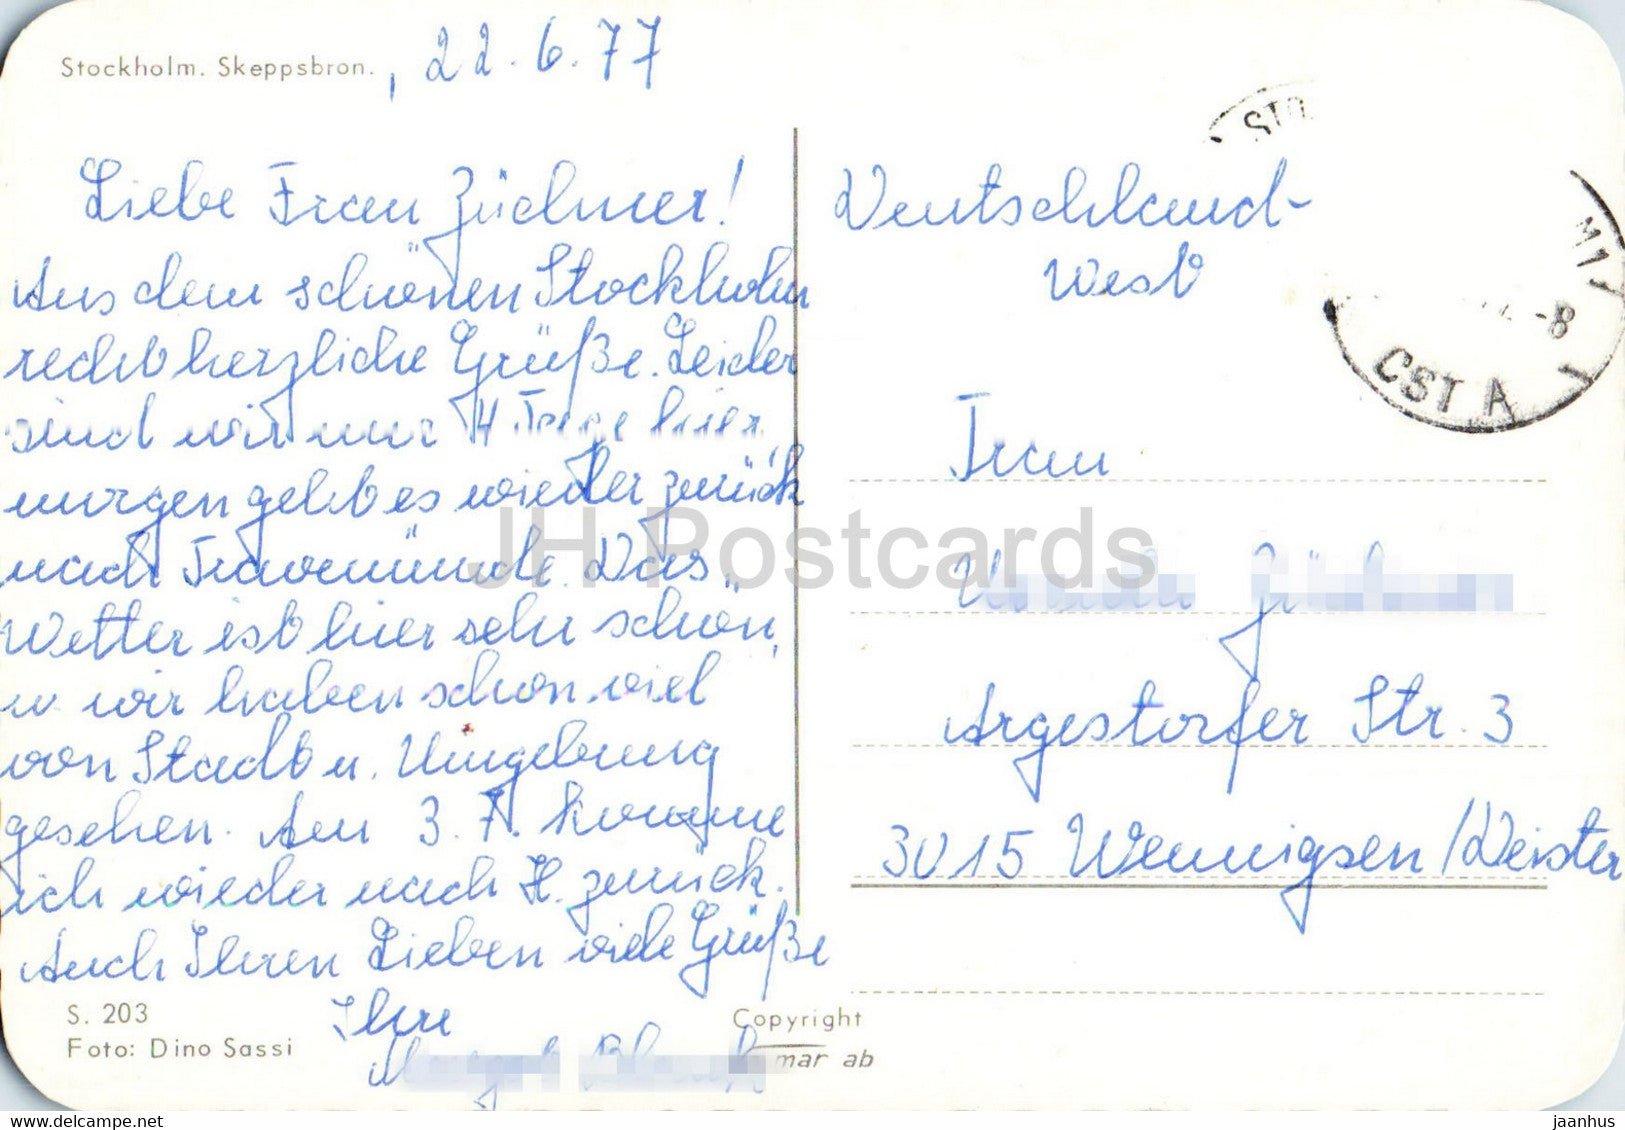 Stockholm. Skeppsbron. , 22.6.77
Liebe Frau Züchner!
Aus dem schönen Stockholm
recht herzliche Grüße. Leider
sind wir nur 4 Tage hier,
morgen geht es wieder zurück
nach Travemünde. Das
Wetter ist hier sehr schön,
u. wir haben schon viel
von Stadt u. Umgebung
gesehen. Am 3.7. komme
ich wieder nach H. zurück.
Auch Ihren Lieben viele Grüße
Ihre
S. 203
Foto: Dino Sassi
Copyright
mar ab
Deutschland-
West
Frau
Argestorfer Str. 3
3015 Wennigsen/Deister
STO
M1
-8
CST A
JH Postcards
https://www.delcampe.net
jaanhus